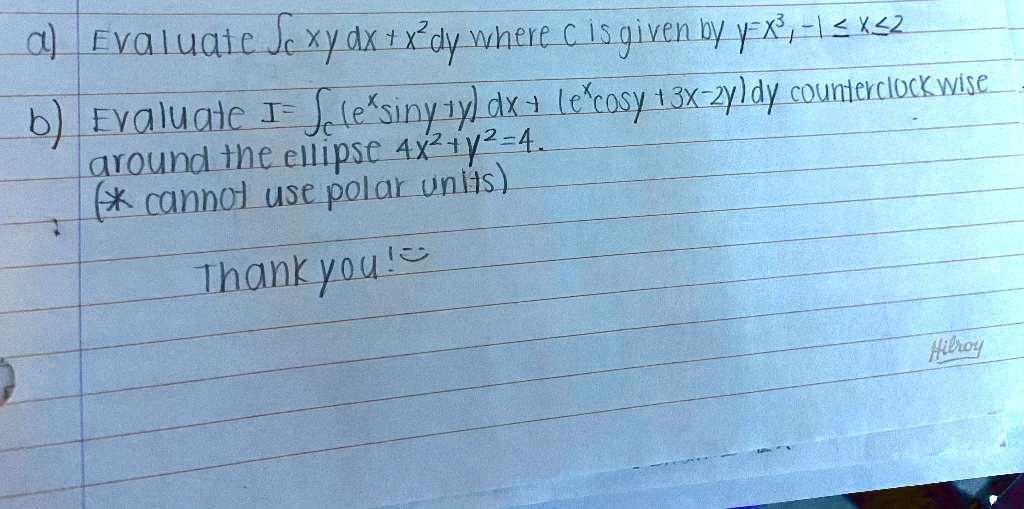 a) Evaluate ∫c xy dx + x²dy where c is given by y=x³, -1 ≤ x ≤ 2
b) Evaluate I = ∫c (eˣsiny+y) dx + (eˣcosy+3x-2y)dy counterclockwise
around the ellipse 4x²+y²=4.
(* cannot use polar units)
Thank you! :)
Hilroy